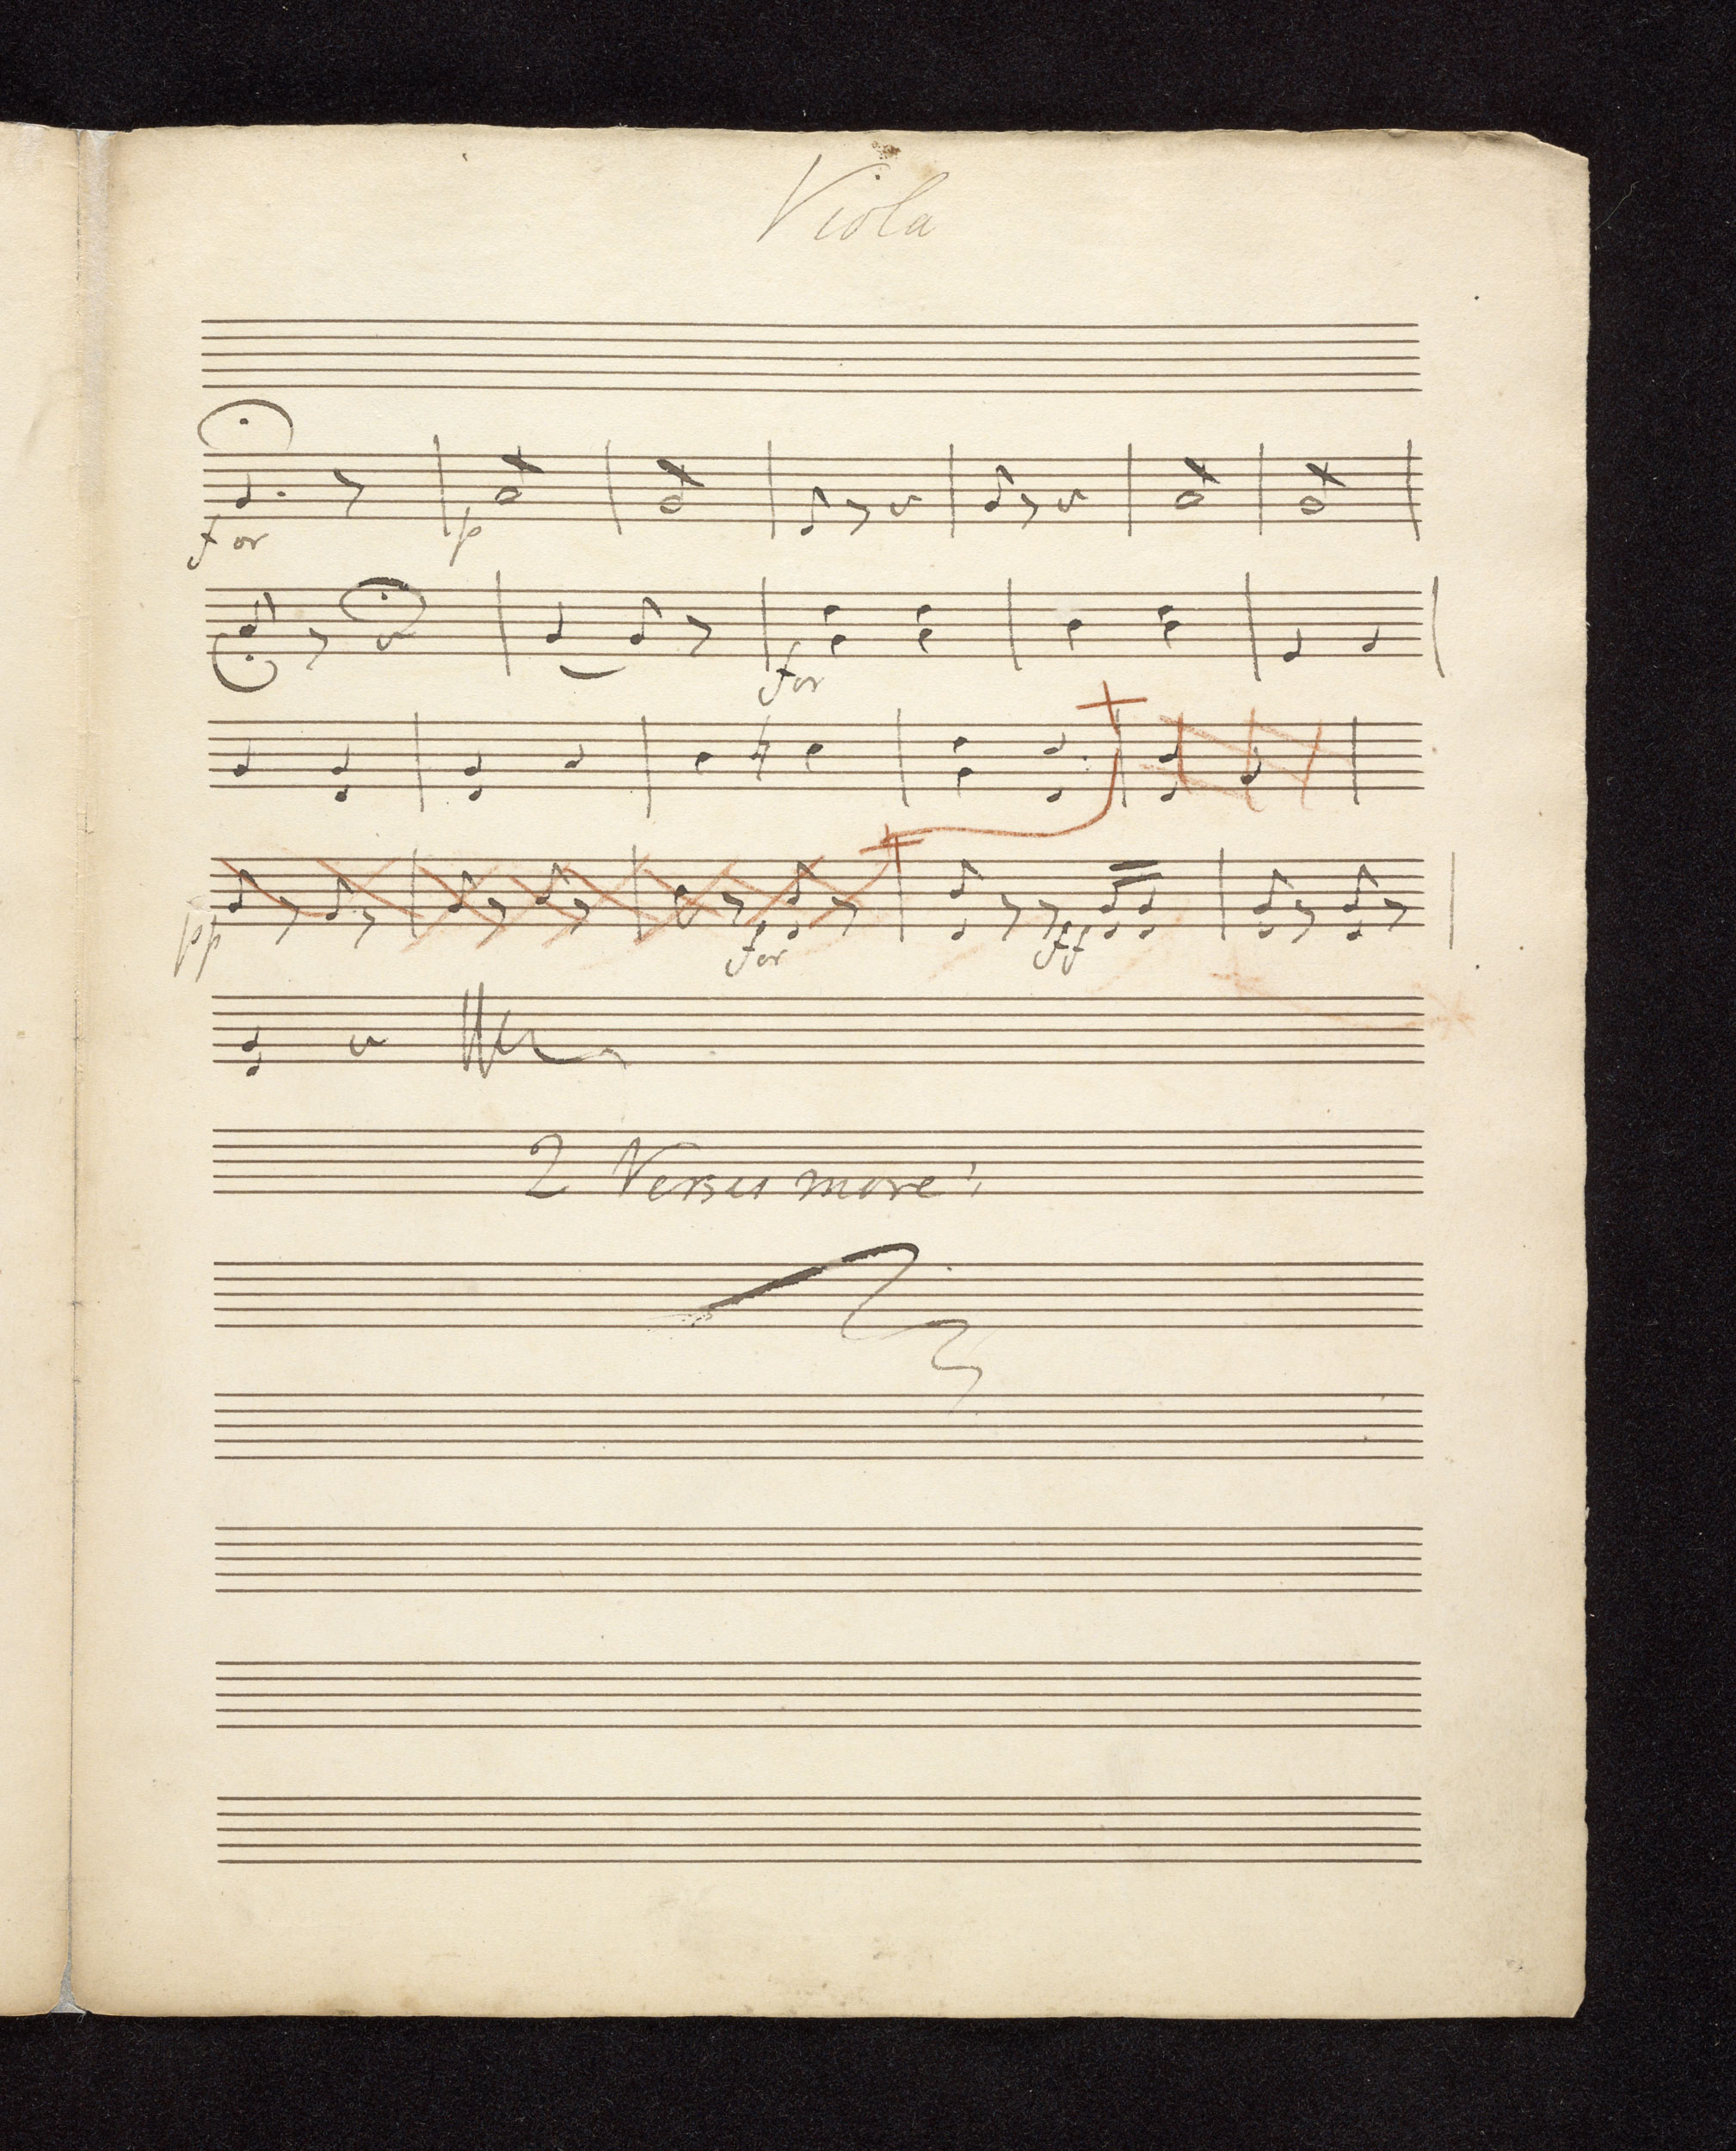 Viola
for p
for
pp for ff
2 Verses more!,